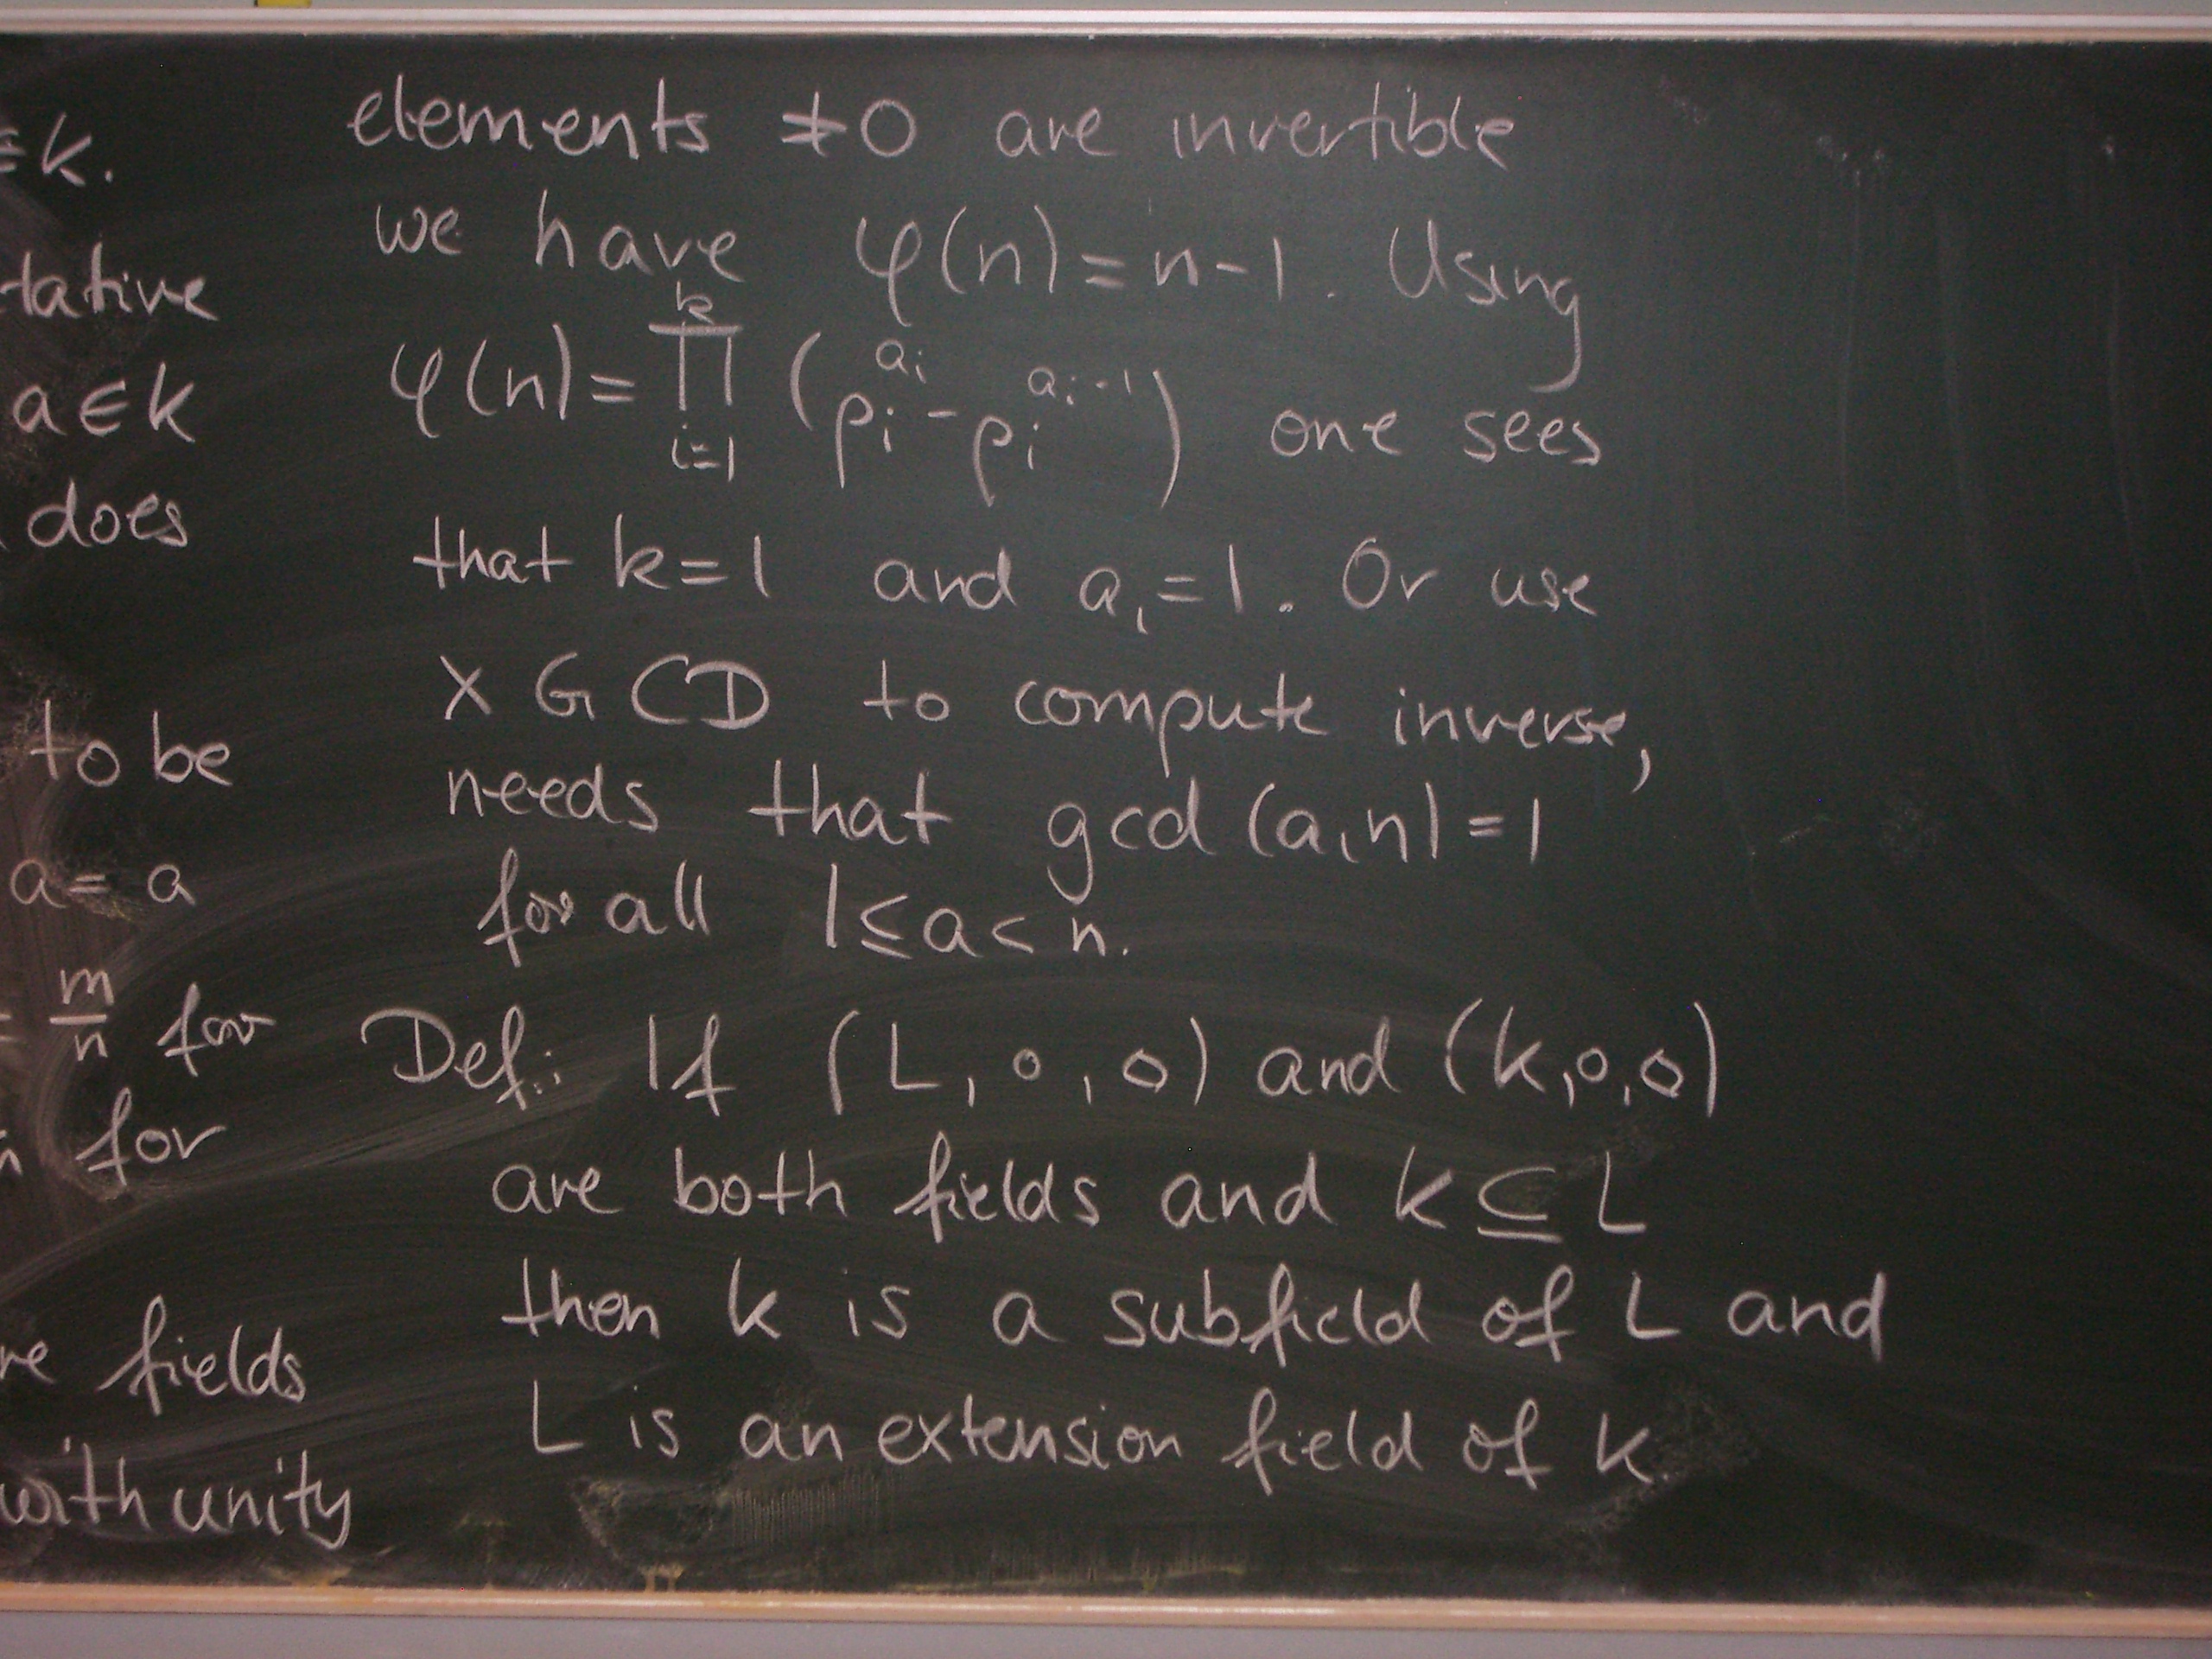 ∈K.
tative
a∈K
does
to be
a = a
= m/n for
n for
re fields
with unity
elements ≠0 are invertible
we have φ(n)=n-1. Using
φ(n)=∏_{i=1}^{k} (p_i^{a_i} - p_i^{a_i-1}) one sees
that k=1 and a₁=1. Or use
XGCD to compute inverse,
needs that gcd(a,n)=1
for all 1≤a<n.
Def.: If (L,∘,◇) and (K,∘,◇)
are both fields and K⊆L
then K is a subfield of L and
L is an extension field of K.